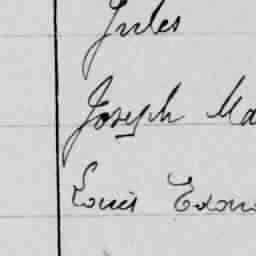 Jules
Joseph Ma
Louis Edou